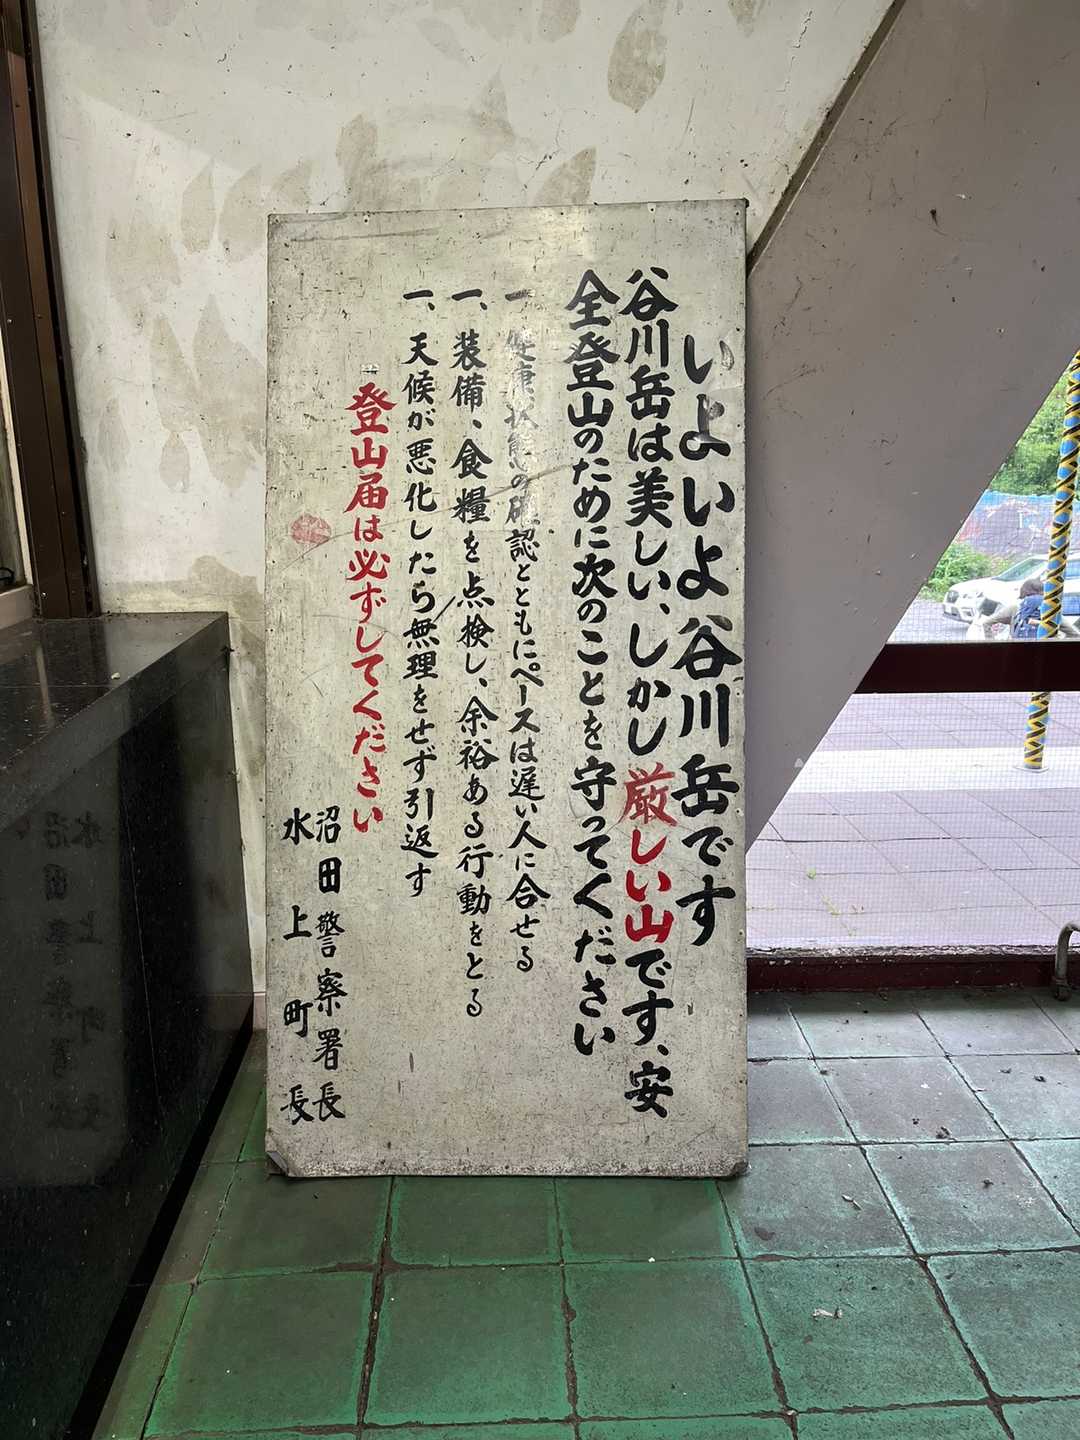 いよいよ谷川岳です
谷川岳は美しい、しかし厳しい山です、安
全登山のために次のことを守ってください
一、健康状態の確認とともにペースは遅い人に合せる
一、装備、食糧を点検し、余裕ある行動をとる
一、天候が悪化したら無理をせず引返す
登山届は必ずしてください
沼田警察署長
水上町長